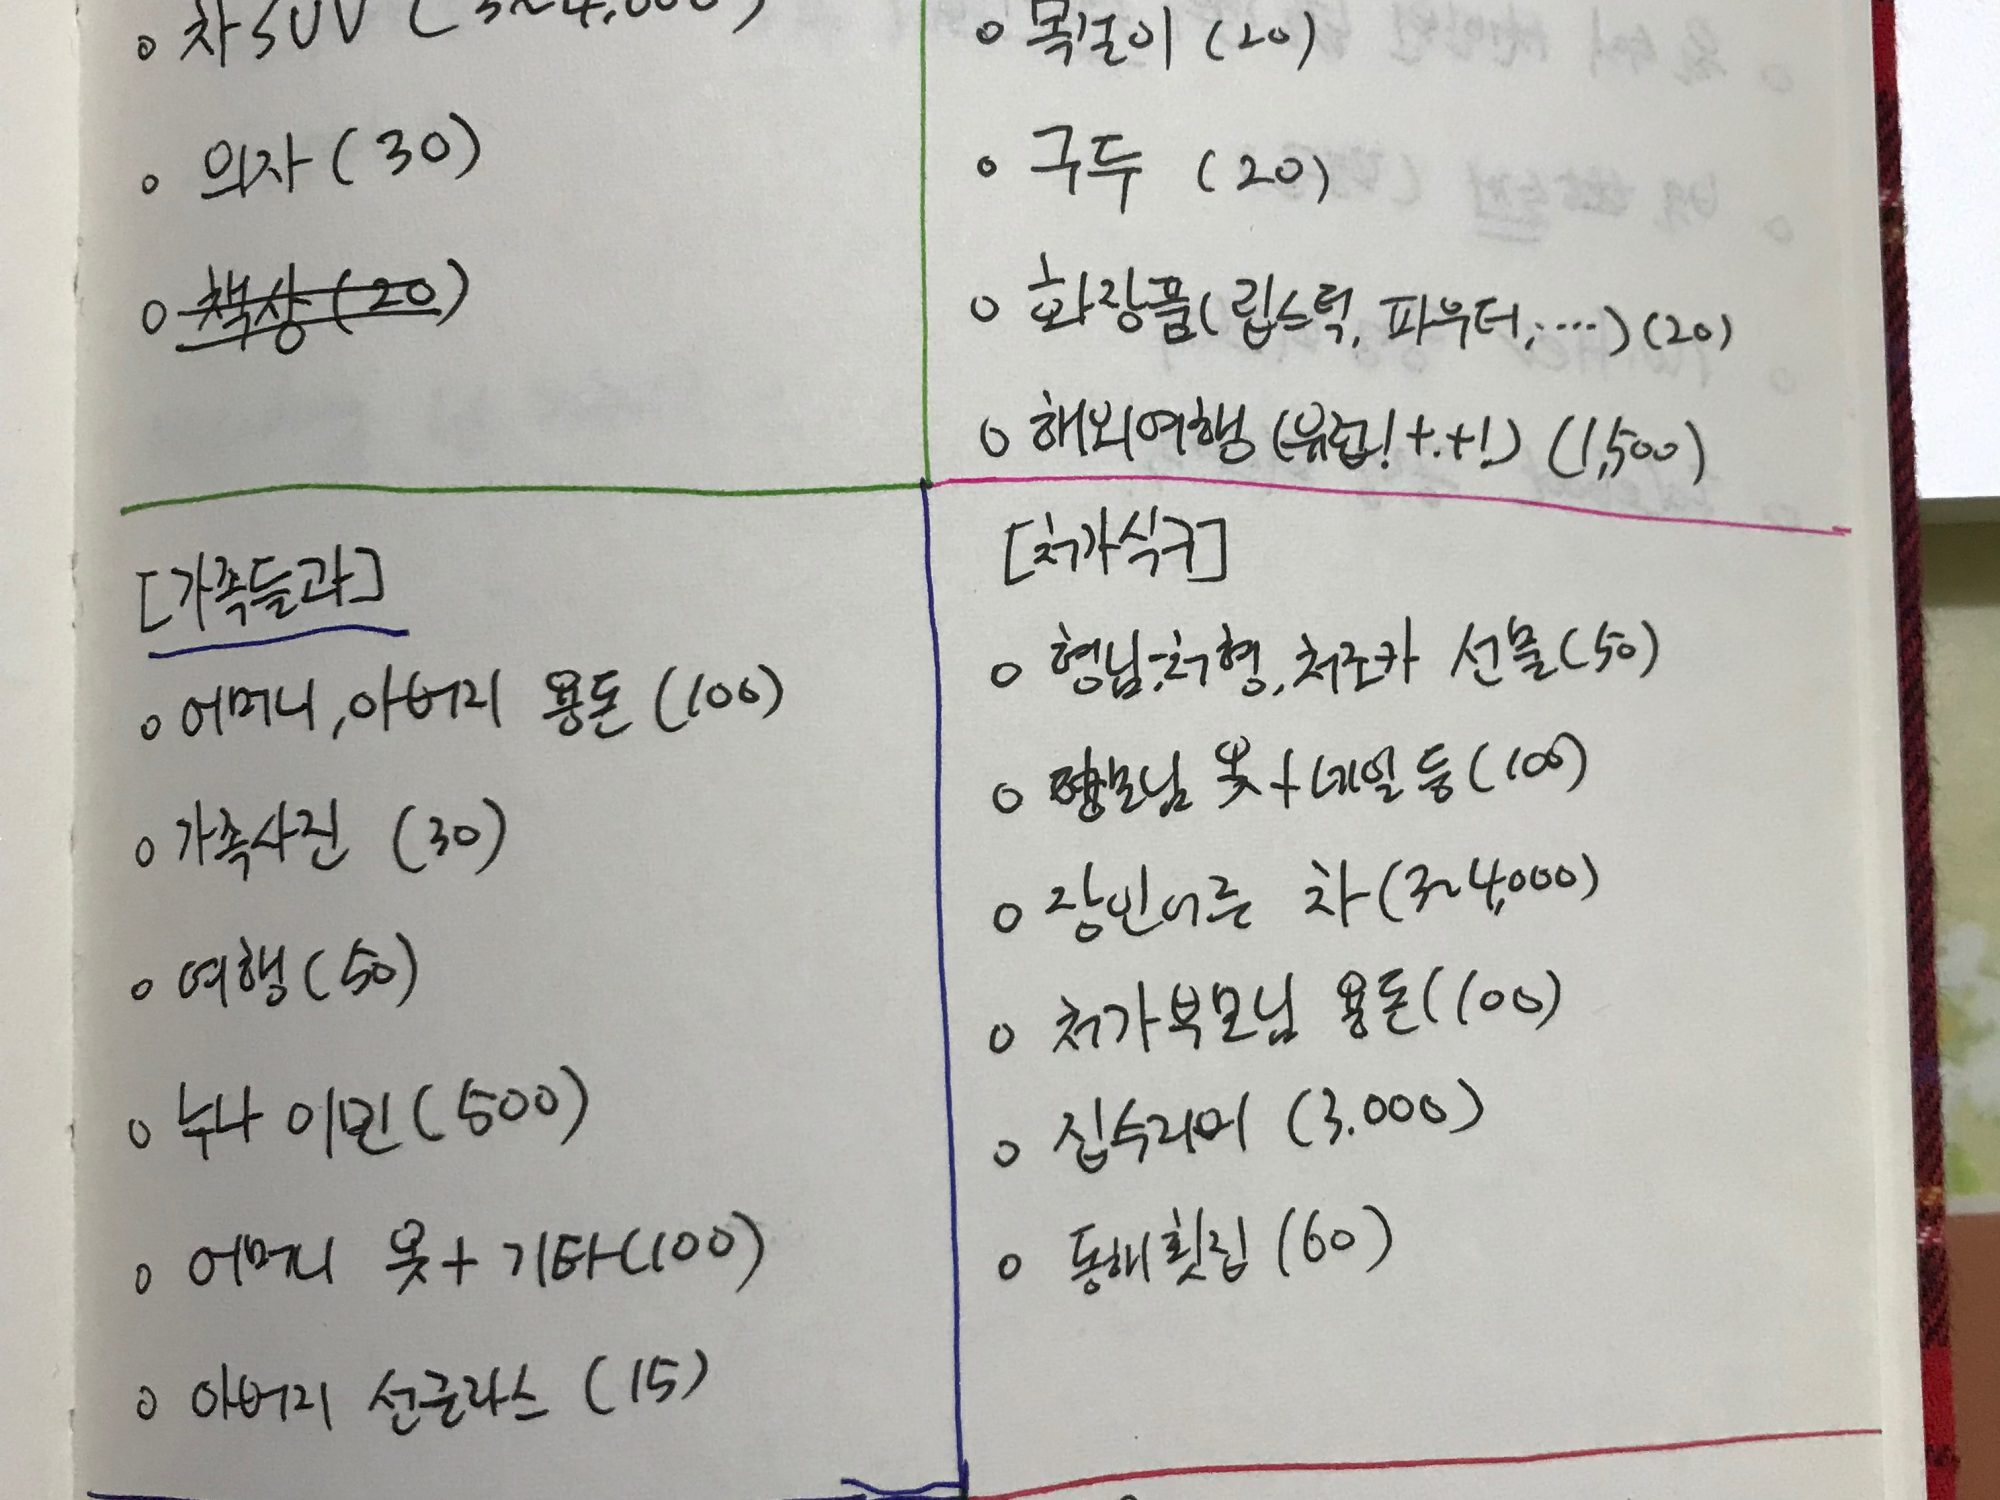 차 SUV (3~4,000)
의자 (30)
책상 (20)
목걸이 (20)
구두 (20)
화장품 (립스틱, 파우더, ....) (20)
해외여행 (유럽! +.+!) (1,500)
[가족들과]
어머니, 아버지 용돈 (100)
가족사진 (30)
여행 (50)
누나 이민 (500)
어머니 옷 + 기타 (100)
아버지 선글라스 (15)
[처가식구]
형님, 처형, 처조카 선물 (50)
모님 옷 + 네일 등 (100)
장인어른 차 (3~4,000)
처가부모님 용돈 (100)
집수리비 (3.000)
동해횟집 (60)